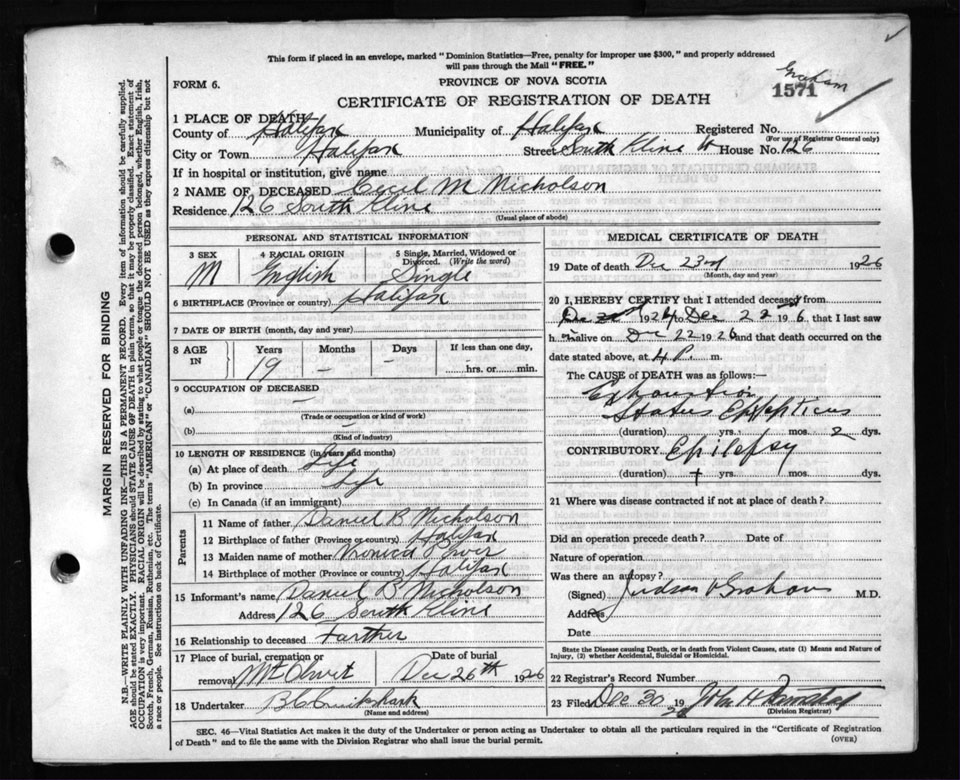 This form if placed in an envelope, marked "Dominion Statistics—Free, penalty for improper use $300," and properly addressed
will pass through the Mail "FREE."
FORM 6.
PROVINCE OF NOVA SCOTIA
Graham
1571
CERTIFICATE OF REGISTRATION OF DEATH
1 PLACE OF DEATH
County of Halifax Municipality of Halifax Registered No.
(For use of Registrar General only)
City or Town Halifax Street South Kline St House No. 126
If in hospital or institution, give name
2 NAME OF DECEASED Cecil M Nicholson
Residence 126 South Kline
(Usual place of abode)
PERSONAL AND STATISTICAL INFORMATION
3 SEX 4 RACIAL ORIGIN 5 Single, Married, Widowed or
Divorced. (Write the word)
M English Single
6 BIRTHPLACE (Province or country) Halifax
7 DATE OF BIRTH (month, day and year)
8 AGE IN Years Months Days If less than one day,
19 – – hrs. or min.
9 OCCUPATION OF DECEASED
(a) –
(Trade or occupation or kind of work)
(b) –
(Kind of industry)
10 LENGTH OF RESIDENCE (in years and months)
(a) At place of death Life
(b) In province Life
(c) In Canada (if an immigrant)
Parents
11 Name of father Daniel B Nicholson
12 Birthplace of father (Province or country) Halifax
13 Maiden name of mother Monica Power
14 Birthplace of mother (Province or country) Halifax
15 Informant's name Daniel B Nicholson
Address 126 South Kline
16 Relationship to deceased Farther
17 Place of burial, cremation or Date of burial
removal Mt Olivet Dec 26th 1926
18 Undertaker
(Name and address)
MEDICAL CERTIFICATE OF DEATH
19 Date of death Dec 23rd 1926
(Month, day and year)
20 I, HEREBY CERTIFY that I attended deceased from
Dec 1926 to Dec 22 1926 that I last saw
h im alive on Dec 22 1926 and that death occurred on the
date stated above, at 4 P. m.
The CAUSE of DEATH was as follows:—
Exhaustion
Status Epilepticus
(duration) yrs. mos. 2 dys.
CONTRIBUTORY Epilepsy
(duration) + yrs. mos. dys.
21 Where was disease contracted if not at place of death?
Did an operation precede death? Date of
Nature of operation
Was there an autopsy?
(Signed) Judson V Graham M.D.
Address
Date
State the Disease causing Death, or in death from Violent Causes, state (1) Means and Nature of
Injury, (2) whether Accidental, Suicidal or Homicidal.
22 Registrar's Record Number
23 Filed Dec 30 1926 John H
(Division Registrar)
SEC. 46—Vital Statistics Act makes it the duty of the Undertaker or person acting as Undertaker to obtain all the particulars required in the "Certificate of Registration
of Death" and to file the same with the Division Registrar who shall issue the burial permit.
(OVER)
MARGIN RESERVED FOR BINDING
N.B.—WRITE PLAINLY WITH UNFADING INK—THIS IS A PERMANENT RECORD. Every item of information should be carefully supplied.
AGE should be stated EXACTLY. PHYSICIANS should STATE CAUSE OF DEATH in plain terms, so that it may be properly classified. Exact statement of
OCCUPATION is very important. RACIAL ORIGIN will be described by stating to what people or tongue the deceased person belonged, whether English, Irish,
Scotch, French, German, Russian, Ruthenian, etc. The terms "AMERICAN" or "CANADIAN" SHOULD NOT BE USED as they express citizenship but not
a race or people. See instructions on back of Certificate.